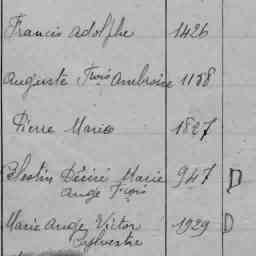 Francis Adolphe 1426
Auguste Frois Ambroise 1158
Pierre Marie 1827
Célestin Désiré Marie 947 D
Ange Frois
Marie Ange Victor 1929 D
Sylvestre